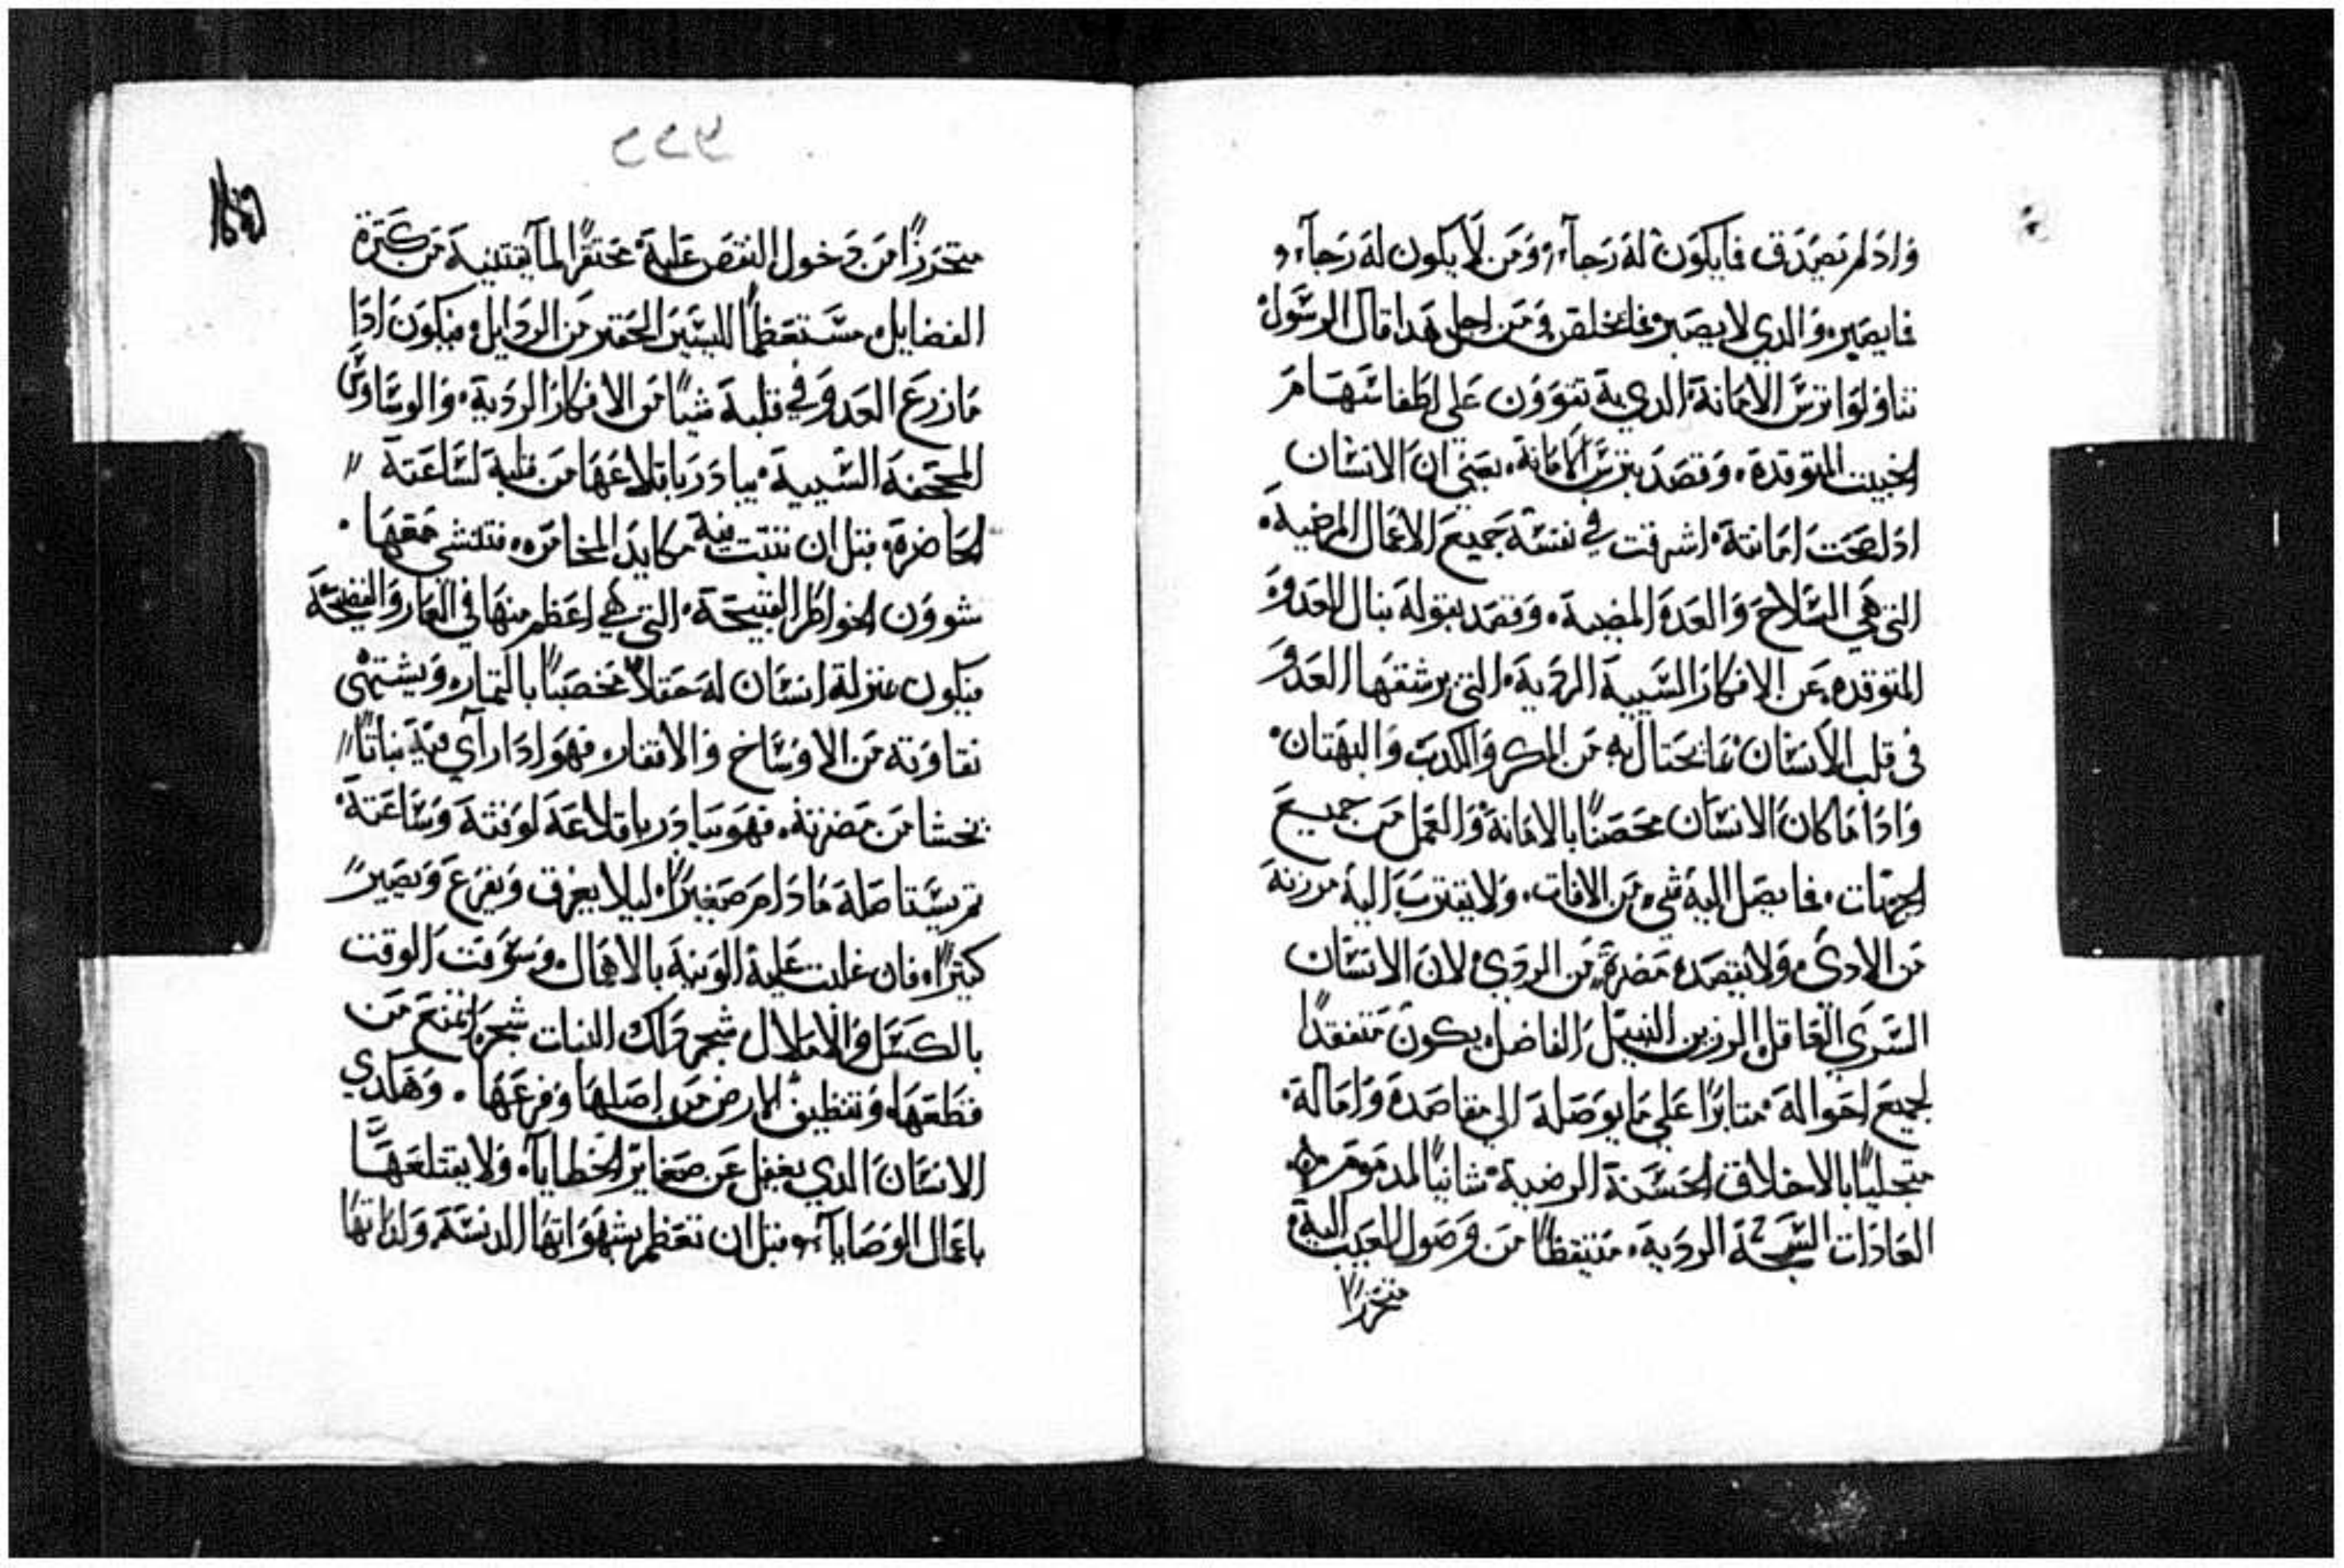 وَادَ لم نصَدق فما يكوَن لهَ رَجاآء، وَمَن لا يكون لهَ رَجاآء،
فما يصَبر، وَالدي لا يصَبر فما يخلص، وَمَن اجل هَدا قال الرسَّول
تناوَلوَا ترسَّ الامَانة، الدي بهَ تقووَن على اطفا سَهَام
الخبيت المتوقدة، وَقصَد بترسَّ الامَانة، يعَني ان الانسَان
ادا صحَت امَانتهَ، اشرقت في نفسَهَ جميعَ الاعَمال المرضيهَ،
التي هَي السَّلاح وَالعَدهَ المضيهَ، وَقصَد بقولهَ نبال العَدوَ
المتوقدهَ، عَن الافكار السَّيية الردَيهَ، التي يرشقهَا العَدوَ
في قلب الانسَان، بمَا يحَتال بهَ مَن المكر وَالكدب وَالبهَتان،
وَادَا مَا كان الانسَان محَصَنًا بالامَانة، وَالعَمل مَن جميعَ
الجهات، فما يصَل اليهَ شيء مَن الافات، وَلا يقترب اليهَ مرزيهَ
مَن الادى، وَلا يقصَدهَ مَضرة، مَن الردَي، لان الانسَان
السَّري العَاقل، الرزين النبيل، الفاضل، يكون مَتفقدًا
لجميعَ احَوالهَ، متابرًا عَلي مَا يوَصَلهَ الى مقاصَدهَ وَامَالهَ،
متحليًا بالاخلاق الحَسَنة الرضيهَ، شانيًا لمدمَومَ
العَادَات السمجة الردَيهَ، مَتيقظًا مَن وَصَول العَيب اليهَ،
متحرزًا
متحَرزًا مَن دَخول النقص عَليهَ، محَتقرًا لما يقتنيهَ مَن كترة
الفضايل، مسَتعَظمًا لليسَير الحقير مَن الردَايل، فيكوَن ادَا
مَا زرعَ العَدوَ في قلبهَ شيًا مَن الافكار الردَيهَ، وَالوسَاوسَ
المجحَفهَ السَّييهَ، يبادَر باقتلاعَهَا مَن قلبهَ لسَاعَتهَ
الحَاضرة، قبل ان تتبت فيهَ مكايد المخامَره، فتنشي مَعَهَا
شووَن الخواطر القبيحَة، التي هَي اعَظم منهَا في العَار وَالفضيحَة
فيكون بمنزلة انسَان لهَ حَقلاً مخصَبًا بالتمار، وَيشتهَي
نقاوَتهَ مَن الاوسَاخ وَالاقفار، فهَوَ ادَا رآي فيهَ نباتًا
يخشا مَن مَضرتهَ، فهَوَ يبادَر باقتلاعَهَ لوَقتهَ وَسَاعَتهَ،
تم يسَتاصَلهَ مَا دَامَ صَغيرًا، ليلا يعَرق وَيفرعَ وَيصَير
كتيرًا، فان غلبت عَليهَ الوَنيهَ بالاهَمال، وَسَوَفت الوقت
بالكسَل وَالامَلال شجر دَلك النبات شجرًا تمنعَ مَن
قطعَهَا، وَتنظيف الارض مَن اصَلهَا وَفرعَهَا. وَهَكدي
الانسَان الدي يغفل عَن صَغاير الخطايا، وَلا يقتلعَهَا
باعَمال الوَصَايا، قبل ان تعَظم بشهَوَاتهَا الدنسَة وَلداتهَا